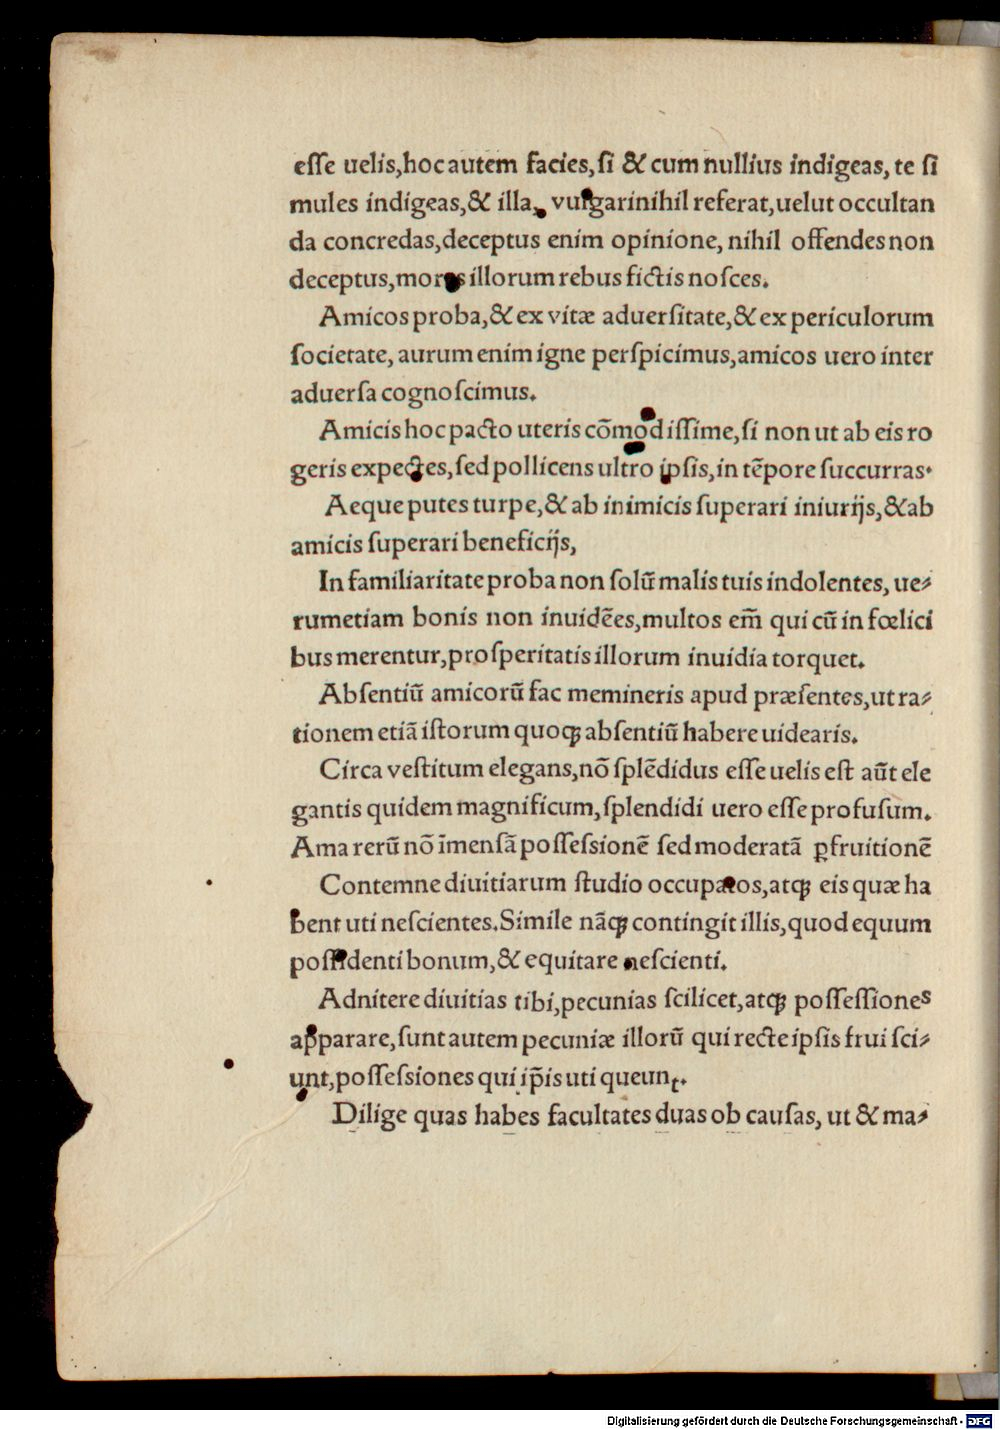 eſſe uelis,hoc autem facies,ſi & cum nullius indigeas, te ſi
mules indigeas,& illa, vulgarinihil referat,uelut occultan
da concredas,deceptus enim opinione, nihil offendes non
deceptus,mores illorum rebus fictis noſces.
Amicos proba,& ex vitæ aduerſitate,& ex periculorum
ſocietate, aurum enim igne perſpicimus,amicos uero inter
aduerſa cognoſcimus.
Amicis hoc pacto uteris cōmodiſſime,ſi non ut ab eis ro
geris expectes,ſed pollicens ultro ipſis,in tēpore ſuccurras.
Aeque putes turpe,& ab inimicis ſuperari iniurijs,& ab
amicis ſuperari beneficijs,
In familiaritate proba non ſolū malis tuis indolentes, ue⸗
rumetiam bonis non inuidēes,multos em̄ qui cū in fœlici
bus merentur,proſperitatis illorum inuidia torquet.
Abſentiū amicorū fac memineris apud præſentes,ut ra⸗
tionem etiā iſtorum quoqꝫ abſentiū habere uidearis.
Circa veſtitum elegans,nō ſplēdidus eſſe uelis eſt aūt ele
gantis quidem magnificum,ſplendidi uero eſſe profuſum.
Ama rerū nō īmenſā poſſeſsionē ſed moderatā ꝑfruitionē
Contemne diuitiarum ſtudio occupatos,atqꝫ eis quæ ha
bent uti neſcientes.Simile nāqꝫ contingit illis,quod equum
poſſidenti bonum,& equitare neſcienti.
Adnitere diuitias tibi,pecunias ſcilicet,atqꝫ poſſeſſiones
apparare,ſunt autem pecuniæ illorū qui recte ipſis frui ſci⸗
unt,poſſeſsiones qui ip̄is uti queunt.
Dilige quas habes facultates duas ob cauſas, ut & ma⸗
Digitalisierung gefördert durch die Deutsche Forschungsgemeinschaft - DFG